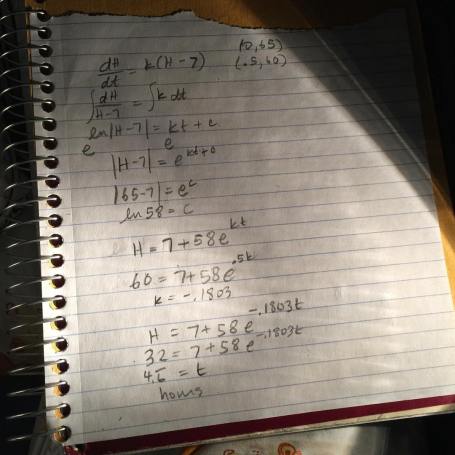 dH/dt = k(H-7) (0,65)
(.5,60)
∫ dH/H-7 = ∫ k dt
ln|H-7| = kt + c
e e
|H-7| = e^kt+c
|65-7| = e^c
ln 58 = c
H = 7+58e^kt
60 = 7+58e^.5k
k = -.1803
H = 7+58e^-.1803t
32 = 7+58e^-.1803t
= t
hours